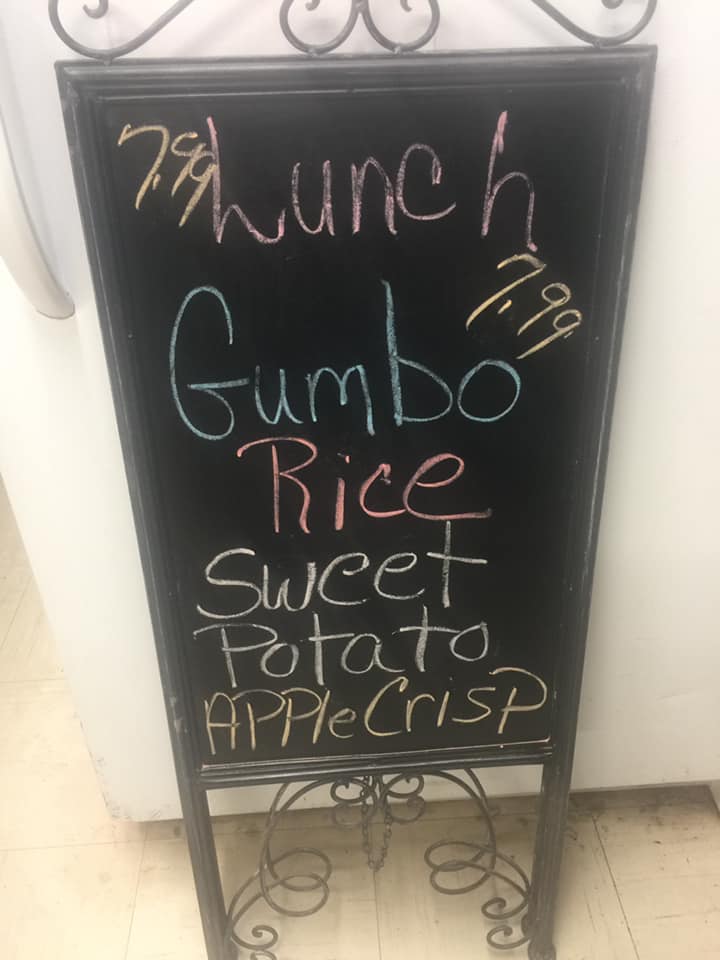 7.99 Lunch
7.99
Gumbo
Rice
Sweet
Potato
APPle Crisp